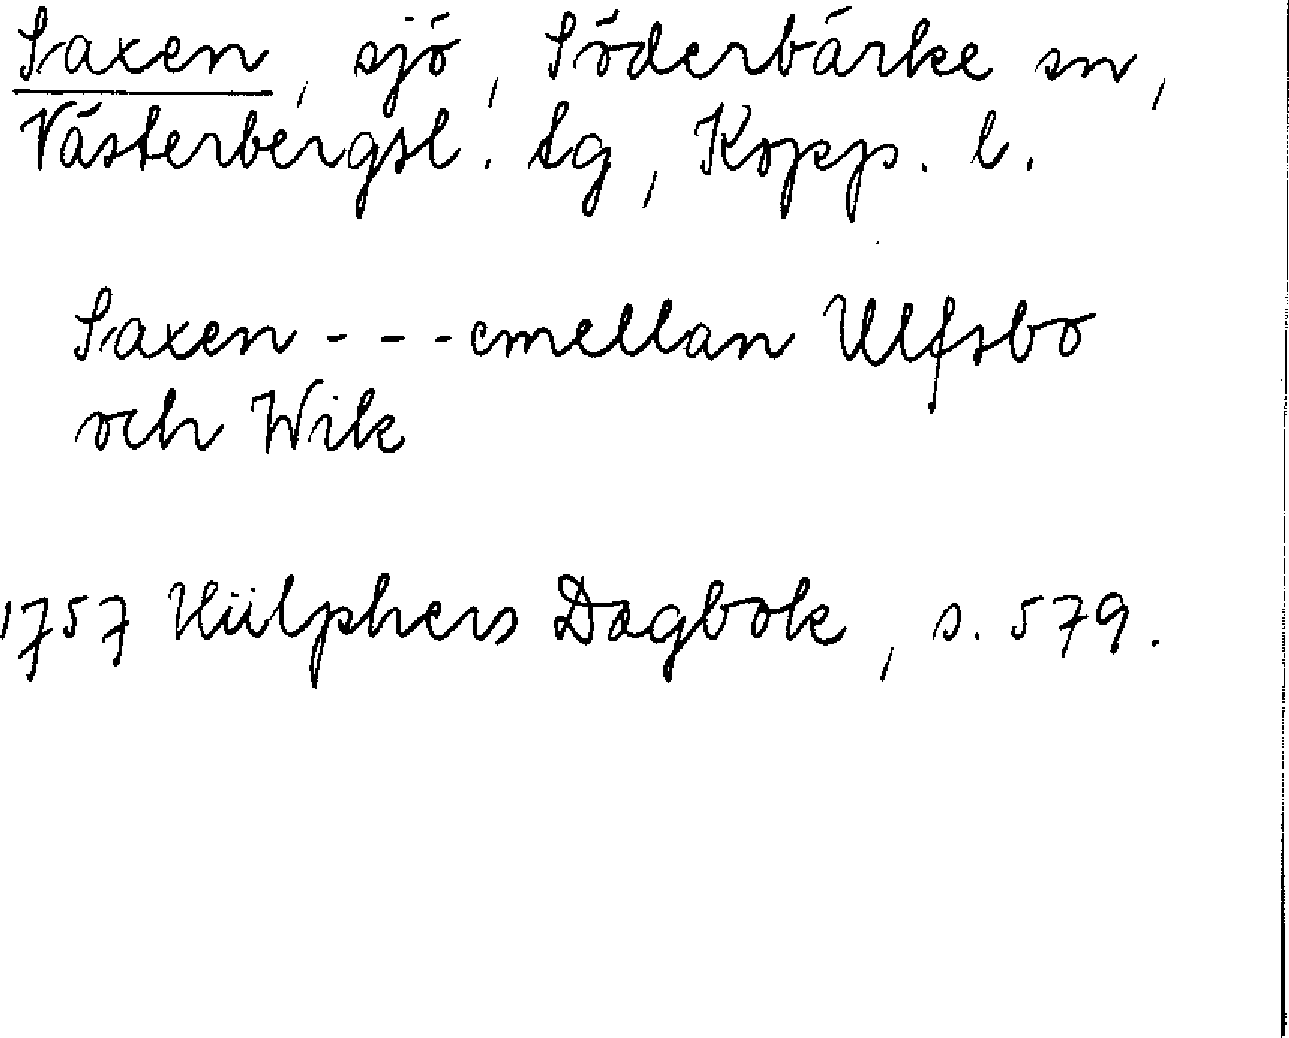 Saxen, sjö, Söderbärke sn,
Västerbergsl. tg, Kopp. l.
Saxen - - - emellan Ulfsbo
och Wik
1757 Hülphers Dagbok, s. 579.